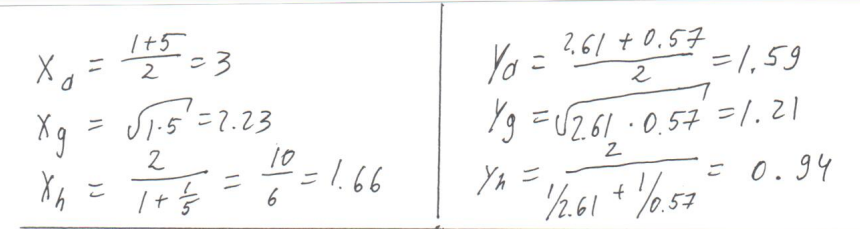 Xa = (1+5)/2 = 3
Xg = √(1·5) = 2.23
Xh = 2/(1+1/5) = 10/6 = 1.66
Ya = (2.61 + 0.57)/2 = 1.59
Yg = √(2.61 · 0.57) = 1.21
Yh = 2/(1/2.61 + 1/0.57) = 0.94